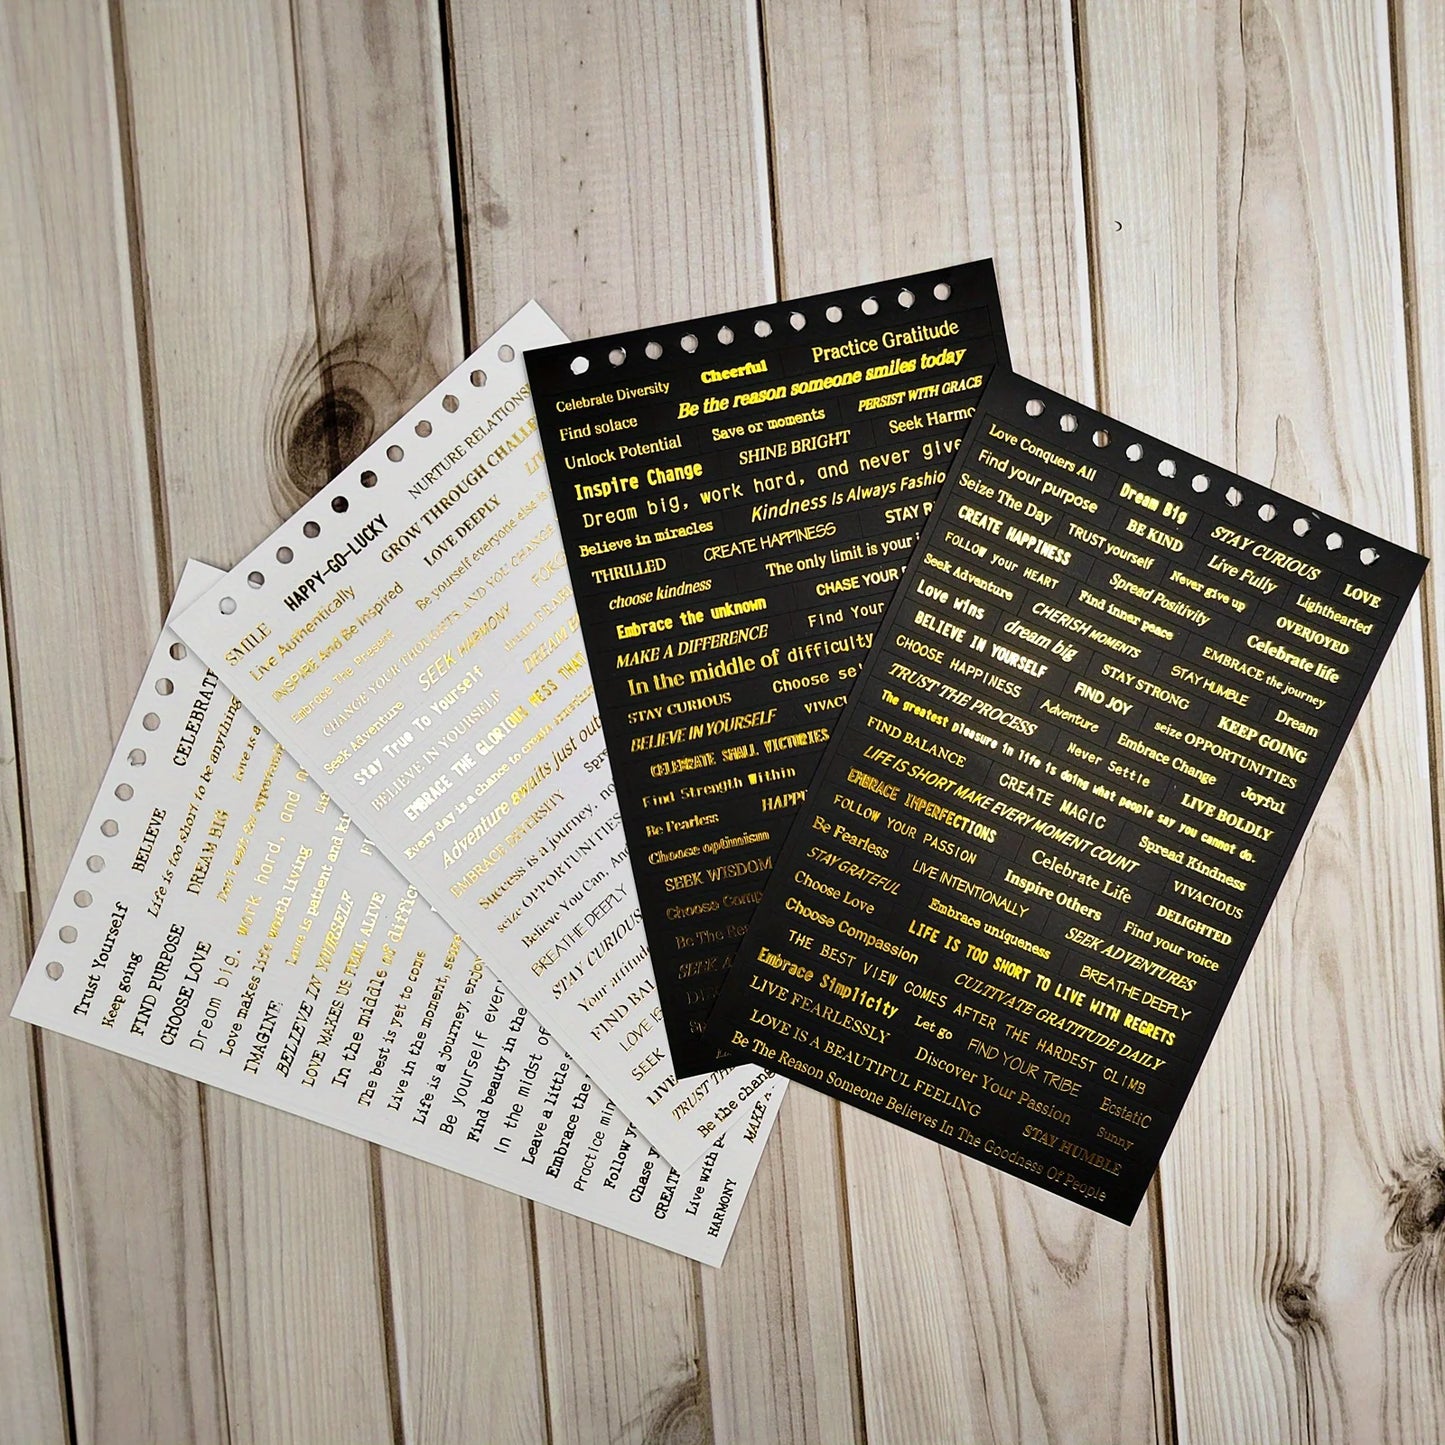 Trust Yourself
Keep going BELIEVE
FIND PURPOSE Life is too short to be anything
CHOOSE LOVE DREAM BIG
Dream big, work hard, and
Love makes life worth living
IMAGINE Love is patient and
BELIEVE IN YOURSELF
LOVE MAKES US FEEL ALIVE
In the middle of
The best is yet to come
Live in the moment,
Life is a journey, enjoy
Be yourself
Find beauty in the
In the midst of
Leave a little
Embrace the
Practice
Follow
Chase
Live with
HARMONY
SMILE HAPPY-GO-LUCKY NURTURE
Live Authentically GROW THROUGH
INSPIRE And Be Inspired LOVE DEEPLY
Embrace The Present Be yourself everyone else is
CHANGE YOUR THOUGHTS AND YOU CHANGE
Seek Adventure SEEK HARMONY
Stay True To Yourself
BELIEVE IN YOURSELF DREAM
EMBRACE THE GLORIOUS MESS THAT
Every day is a chance to create
Adventure awaits just
EMBRACE DIVERSITY
Success is a journey,
seize OPPORTUNITIES
Believe You Can, And
BREATHE DEEPLY
STAY CURIOUS
Your attitude
FIND
LOVE IS
SEEK
LIVE
TRUST
Be the
MAKE A
Celebrate Diversity Cheerful Practice Gratitude
Find solace Be the reason someone smiles today
Unlock Potential Save or moments PERSIST WITH GRACE
Inspire Change SHINE BRIGHT Seek
Dream big, work hard, and never give
Believe in miracles Kindness Is Always
THRILLED CREATE HAPPINESS STAY
choose kindness The only limit is your
Embrace the unknown CHASE YOUR
MAKE A DIFFERENCE Find Your
In the middle of difficulty
STAY CURIOUS Choose
BELIEVE IN YOURSELF
CELEBRATE SMALL VICTORIES
Find Strength Within
Be Fearless
Choose optimism
SEEK WISDOM
Choose
Be The
SEEK
Love Conquers All Dream Big STAY CURIOUS LOVE
Find your purpose BE KIND Live Fully Lighthearted
Seize The Day TRUST yourself Never give up OVERJOYED
CREATE HAPPINESS Spread Positivity Celebrate life
FOLLOW your HEART Find inner peace EMBRACE the journey
Seek Adventure CHERISH MOMENTS STAY HUMBLE Dream
Love wins dream big STAY STRONG KEEP GOING
BELIEVE IN YOURSELF FIND JOY seize OPPORTUNITIES
CHOOSE HAPPINESS Adventure Embrace Change Joyful
TRUST THE PROCESS Never Settle LIVE BOLDLY
The greatest pleasure in life is doing what people say you cannot do.
FIND BALANCE CREATE MAGIC Spread Kindness
LIFE IS SHORT MAKE EVERY MOMENT COUNT VIVACIOUS
EMBRACE IMPERFECTIONS Celebrate Life DELIGHTED
FOLLOW YOUR PASSION Inspire Others Find your voice
Be Fearless LIVE INTENTIONALLY SEEK ADVENTURES
STAY GRATEFUL Embrace uniqueness BREATHE DEEPLY
Choose Love LIFE IS TOO SHORT TO LIVE WITH REGRETS
Choose Compassion CULTIVATE GRATITUDE DAILY
THE BEST VIEW COMES AFTER THE HARDEST CLIMB
Embrace Simplicity Let go FIND YOUR TRIBE EcstatiC
LIVE FEARLESSLY Discover Your Passion Sunny
LOVE IS A BEAUTIFUL FEELING STAY HUMBLE
Be The Reason Someone Believes In The Goodness Of People